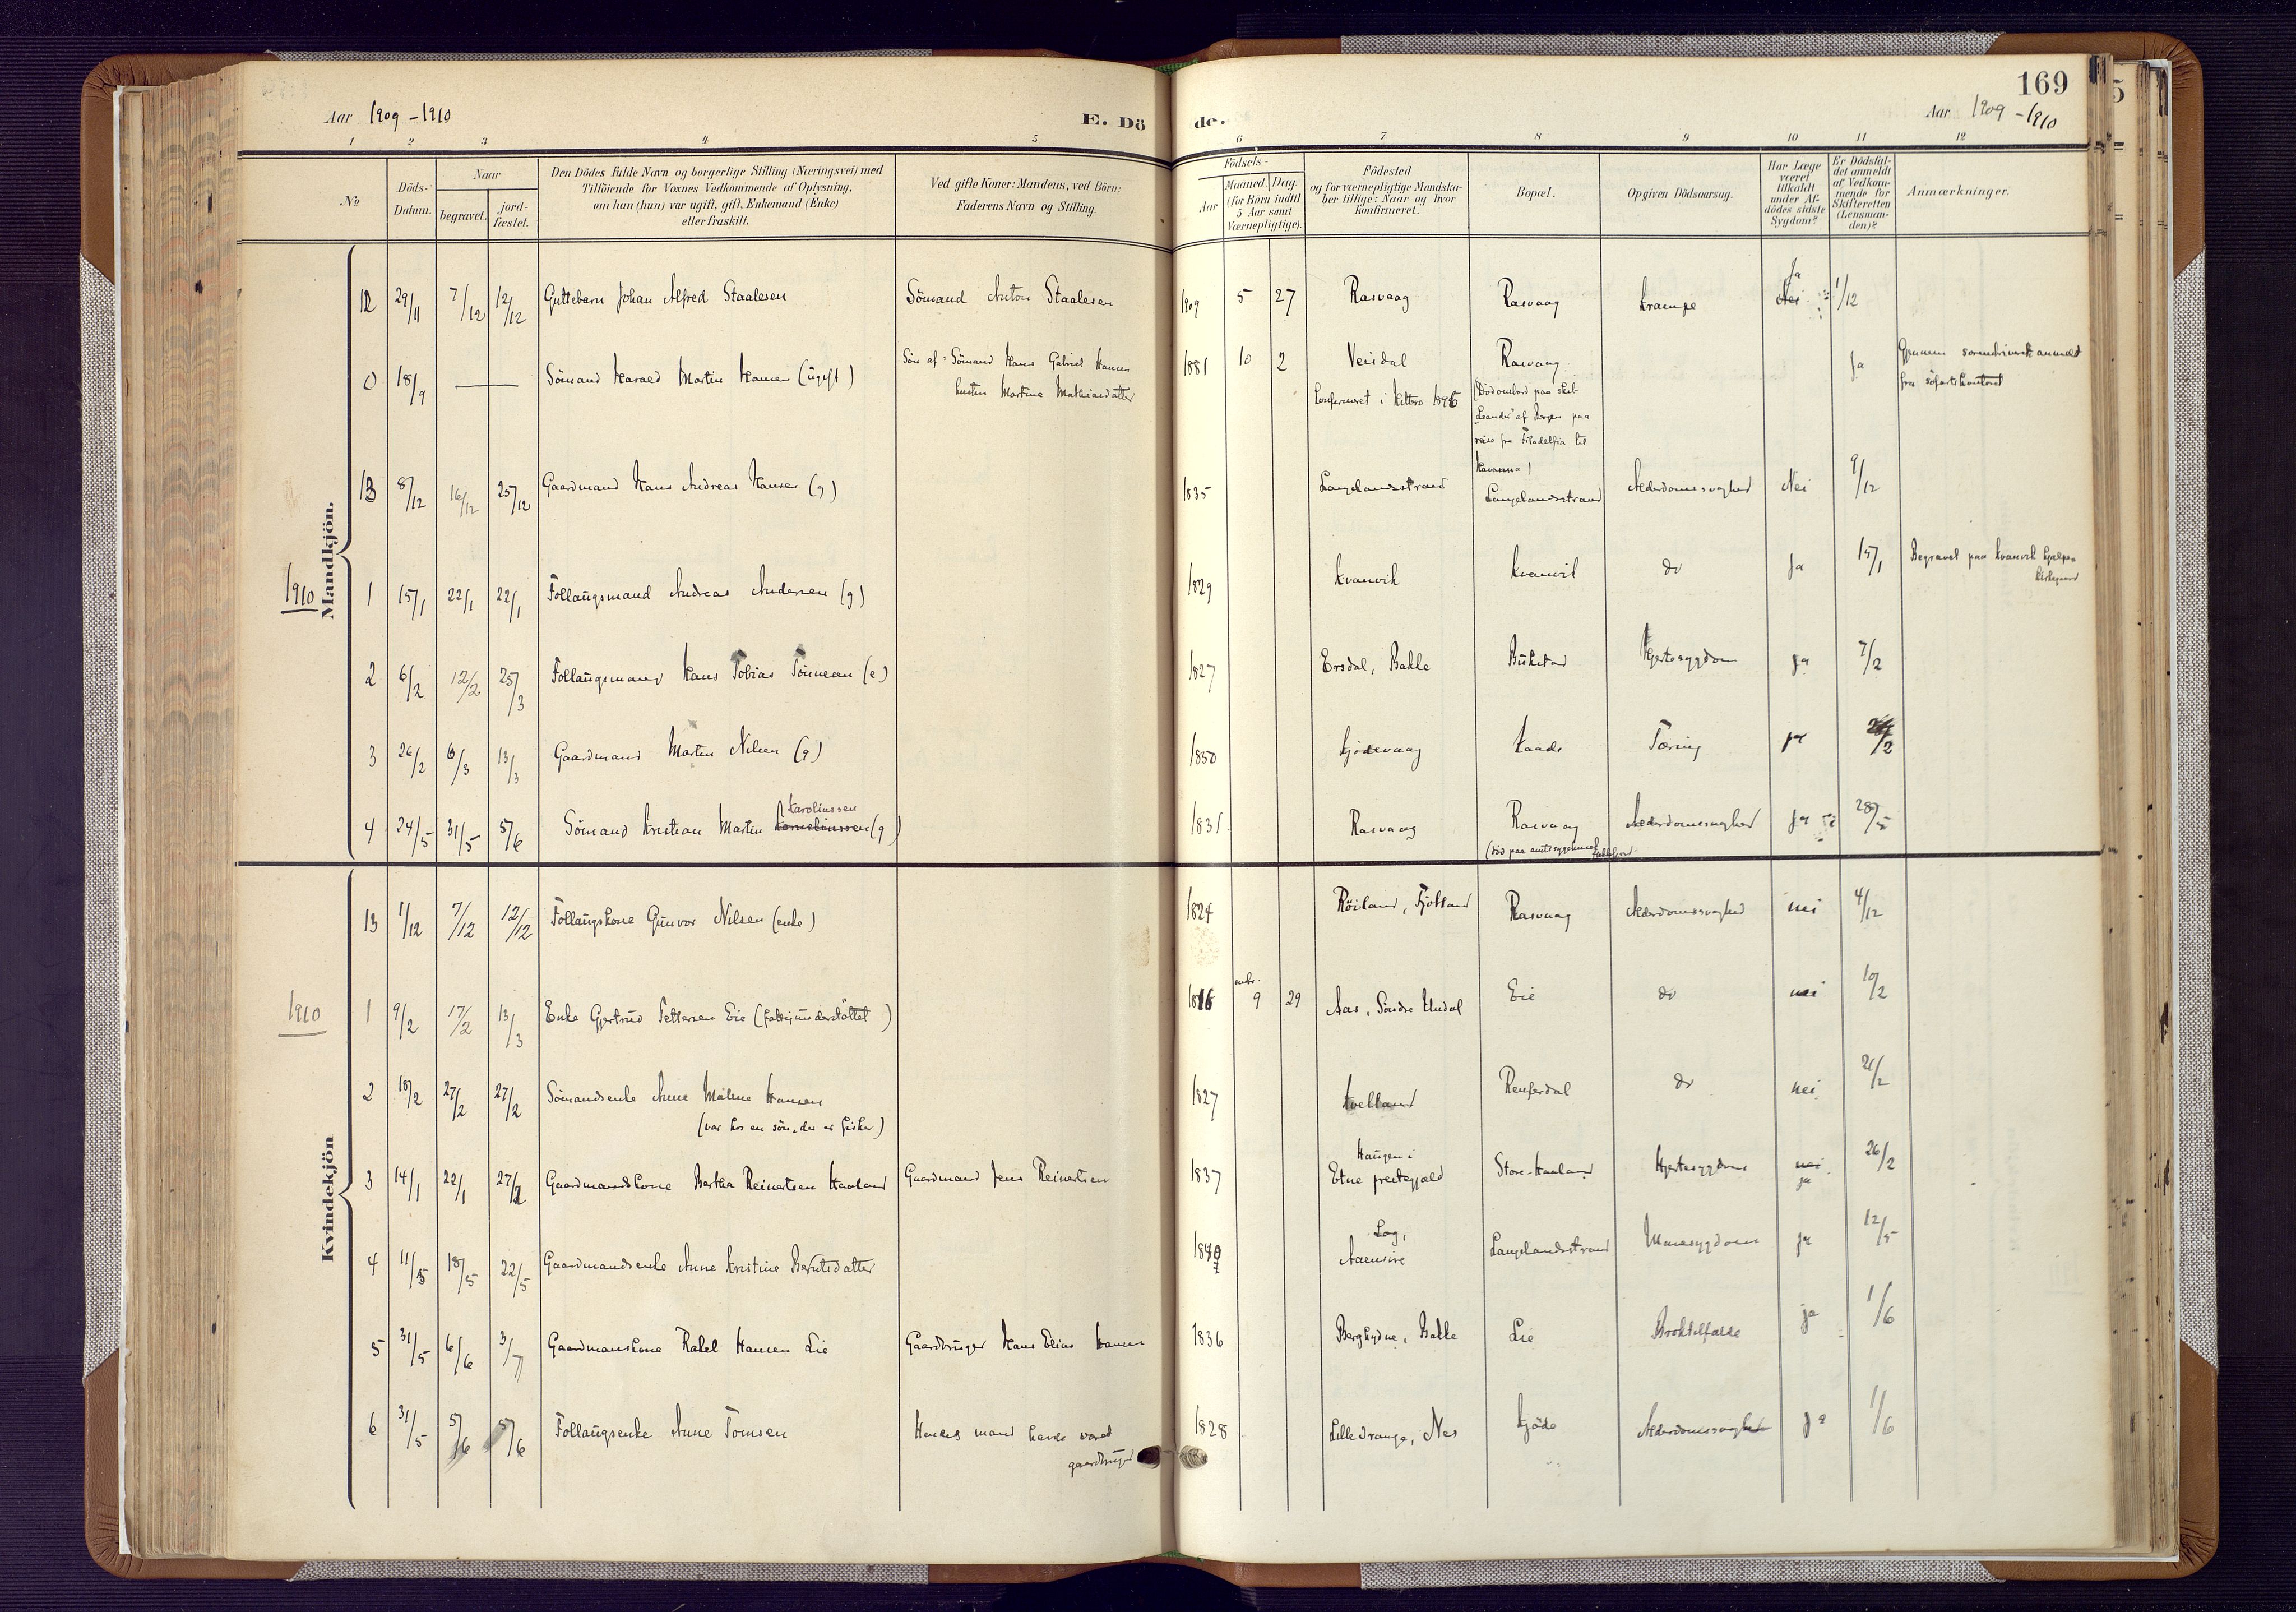 169
Aar 1909 - 1910 E. Dö de. Aar 1909 - 1910
1 2 3 4 5 6 7 8 9 10 11 12
No
Döds-Datum.
Naar
begravet.
jordfæstet.
Den Dödes fulde Navn og borgerlige Stilling (Næringsvei) med
Tilföiende for Voxnes Vedkommende af Oplysning,
om han (hun) var ugift, gift, Enkemand (Enke)
eller fraskilt.
Ved gifte Koner: Mandens, ved Börn:
Faderens Navn og Stilling.
Födsels-
Aar
Maaned.
Dag.
(for Börn indtil
5 Aar samt
Værnepligtige).
Födested
og for værnepligtige Mandska-
ber tillige: Naar og hvor
konfirmeret.
Bopæl.
Opgiven Dödsaarsag.
Har Læge
været
tilkaldt
under Af-
dödes sidste
Sygdom?
Er Dödsfal-
det anmeldt
af Vedkom-
mende for
Skifteretten
(Lensman-
den)?
Anmærkninger.
Mandkjön.
12 29/11 7/12 12/12 Guttebarn Johan Alfred Staalesen Sömand Anton Staalesen 1909 5 27 Rasvaag Rasvaag Krampe Nei Ja 1/12
0 18/9 — Sömand Harald Martin Hansen (ugift) Sön af: Sömand Hans Gabriel Hansen
hustru Martine Mathiasdatter 1881 10 2 Veisdal Rasvaag. Ja
Konfirmeret i Hitterö 1896 (Död ombord paa skib
"Leander" af Bergen paa
reise fra Filadelfia til
Havanna)
13 8/12 16/12 25/12 Gaardmand Hans Andreas Hansen (g) 1835 Langelandsstrand Langelandsstrand Alderdomssvaghed Nei 9/12
1910
1 15/1 22/1 22/1 Follaugsmand Andreas Andersen (g) 1829 Kvanvik Kvanvik do Ja 15/1 Begravet paa Kvanvik hjælpe-
kirkegaard
2 6/2 12/2 25/3 Follaugsmand Hans Tobias Tönnesen (e) 1827 Ersdal, Bakke Bukstad Hjertesygdom ja 7/2
3 26/2 6/3 13/3 Gaardmand Martin Nilsen (g) 1850 Kjödevaag Haade Tæring ja
4 24/5 31/5 5/6 Sömand Kristian Martin Karoliussen Korneliussen (g) 1831 Rasvaag Rasvaag Alderdomssvaghed ja 28/5
(död paa amtssygehuset
Kvindekjön
13 1/12 7/12 12/12 Follaugskone Gunvor Nilsen (enke) 1824 Röiland, Fjotland Rasvaag Alderdomssvaghed nei 4/12
1910
1 9/2 17/2 13/3 Enke Gjertrud Pettersen Eie (fattigunderstöttet) 1816 9 29 Aas, Söndre Undal Eie do nei 10/2
2 18/2 27/2 27/2 Sömandsenke Anne Malene Hansen 1827 Kvelland Renferdal do nei 21/2
(var hos en sön, der er fisker)
3 14/1 22/1 27/2 Gaardmandskone Bertha Reinertsen Haaland Gaardmand Jens Reinertsen 1837 Haugen i
Etne prestegjæld Store-Haaland Hjertesygdom nei. ja 26/2
4 11/5 18/5 22/5 Gaardmandsenke Anne Kristine Berntsdatter 1840 Log,
Aaensire Langelandsstrand Mavesygdom ja 12/5
5 31/5 6/6 3/7 Gaardmanskone Rakel Hansen Lie Gaardbruger Hans Elias Hansen 1836 Bakke Lie Broktilfælde ja 1/6
6 31/5 5/6 5/6 Follaugsenke Anne Tomsen Hendes mand havde været
gaardbruger 1828 Lille Drange, Nes Kjöde Alderdomssvaghed ja 1/6